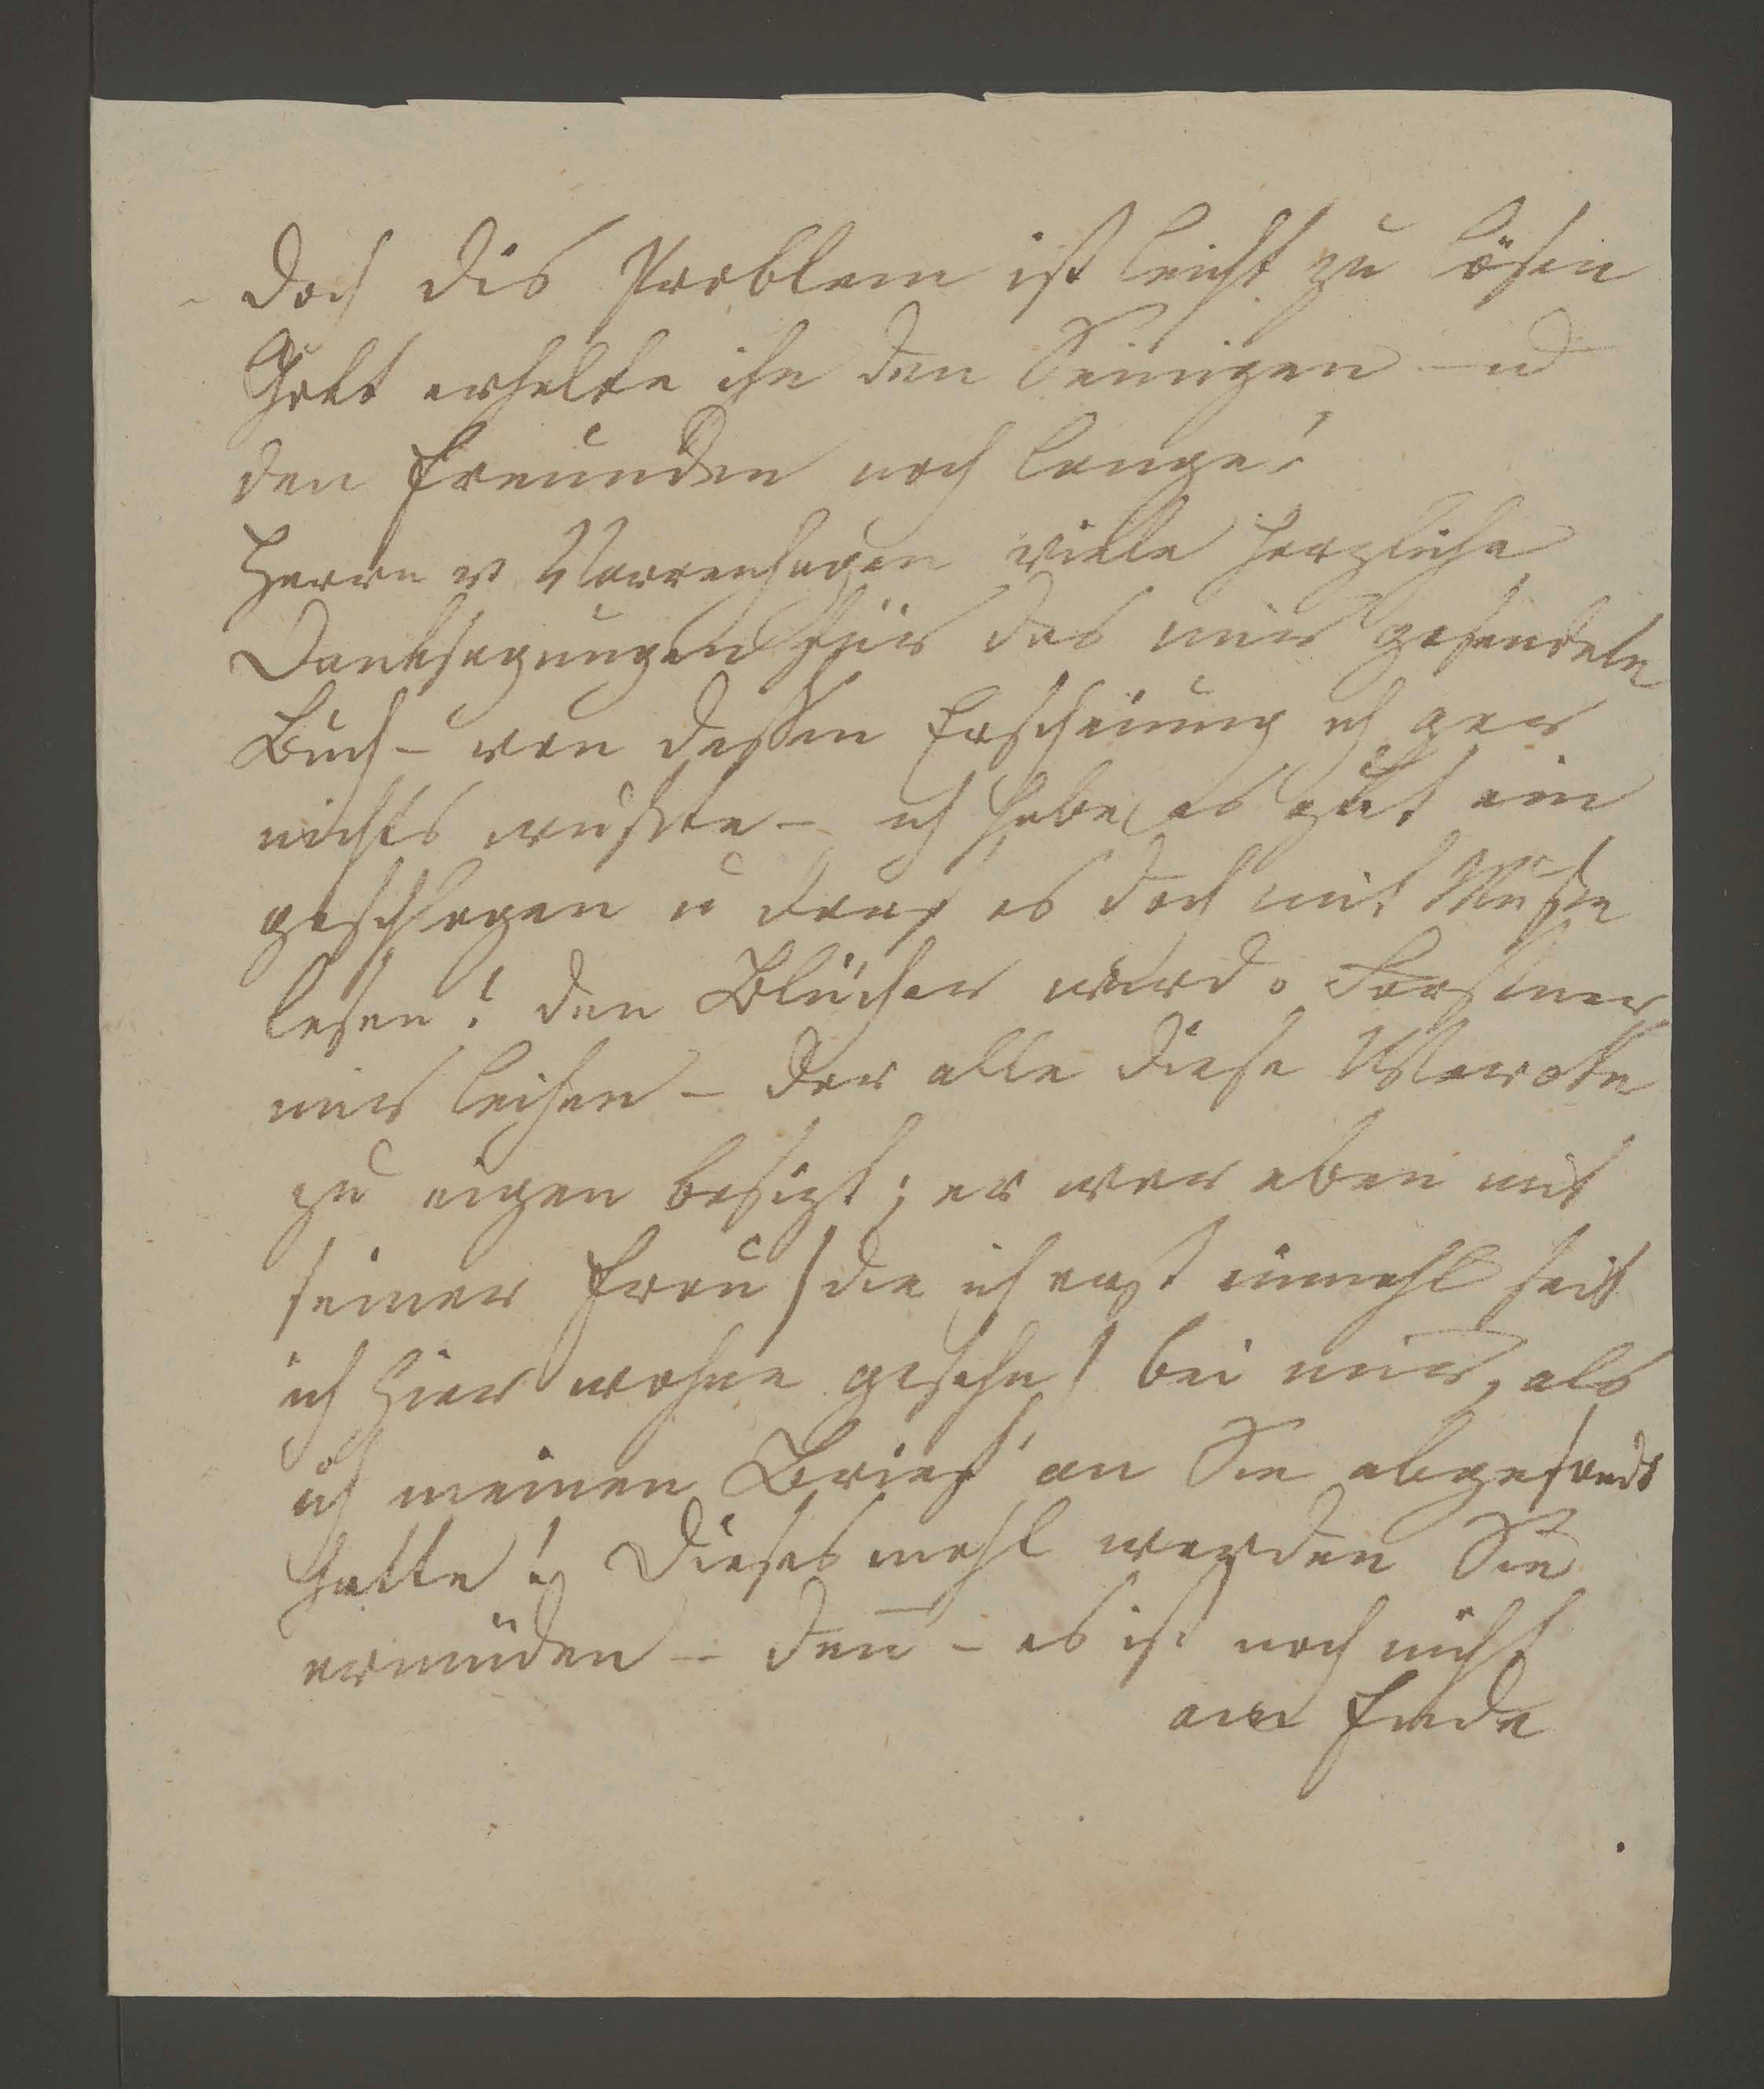 - doch dis Problem ist leicht zu lösen
Gott erhelte ihn den Seinigen und
den Freunden noch lange!
Herrn v Varrenhagen viele herzliche
Danksagungen für das mir gesendete
Buch - von dessen Erscheinung ich gar
nichts wußte - ich habe es gut ein
geschlagen u darf es doch mit Muße
lesen! den Blücher wird
mir leihen - der alle diese Werke
zu eigen besizt; er war eben mit
seiner Frau /die ich erst einmahl seit
ich hier wohne gesehn/ bei mir, als
ich meinen Brief an Sie abgesandt
hatte! Diesesmahl werden Sie
ermüden - denn̅ - es ist noch nicht
am Ende